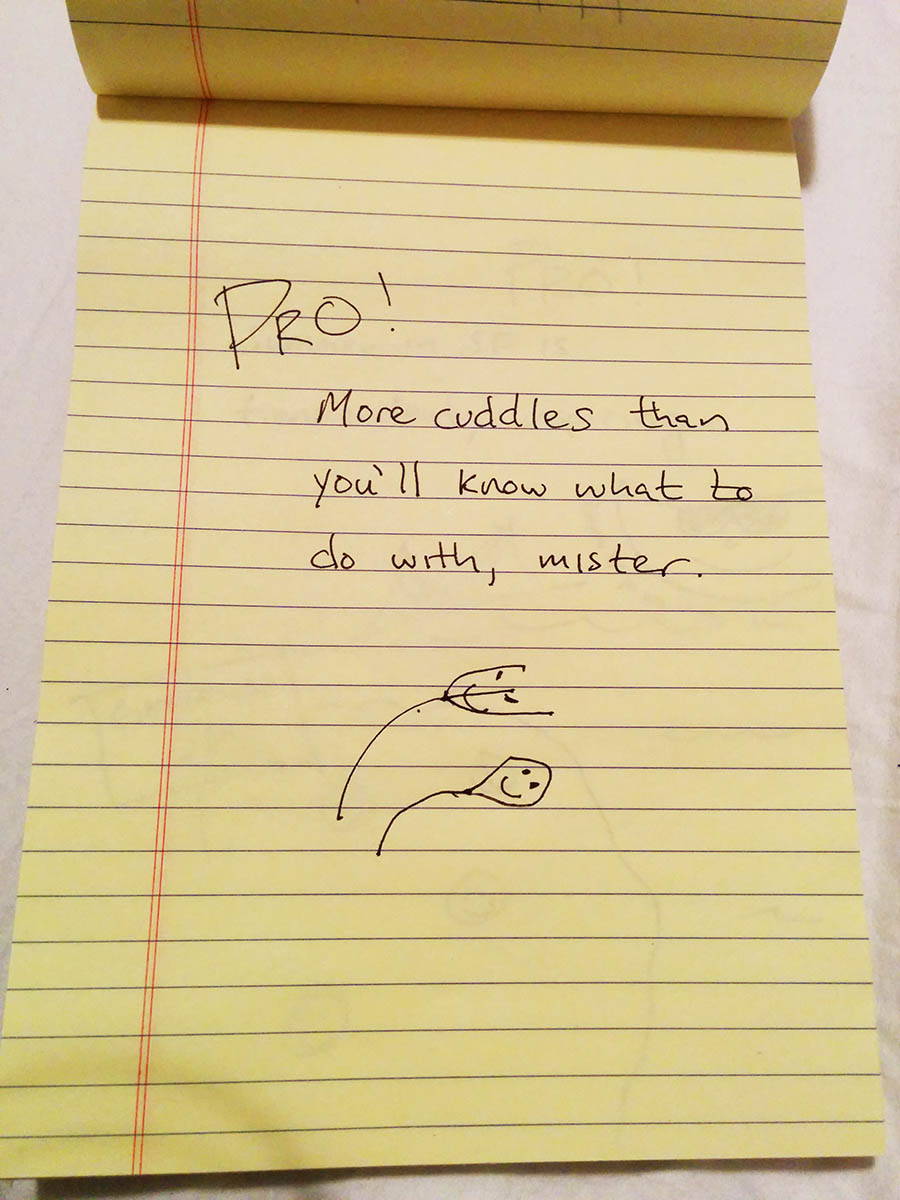 PRO!
More cuddles than
you'll know what to
do with, mister.